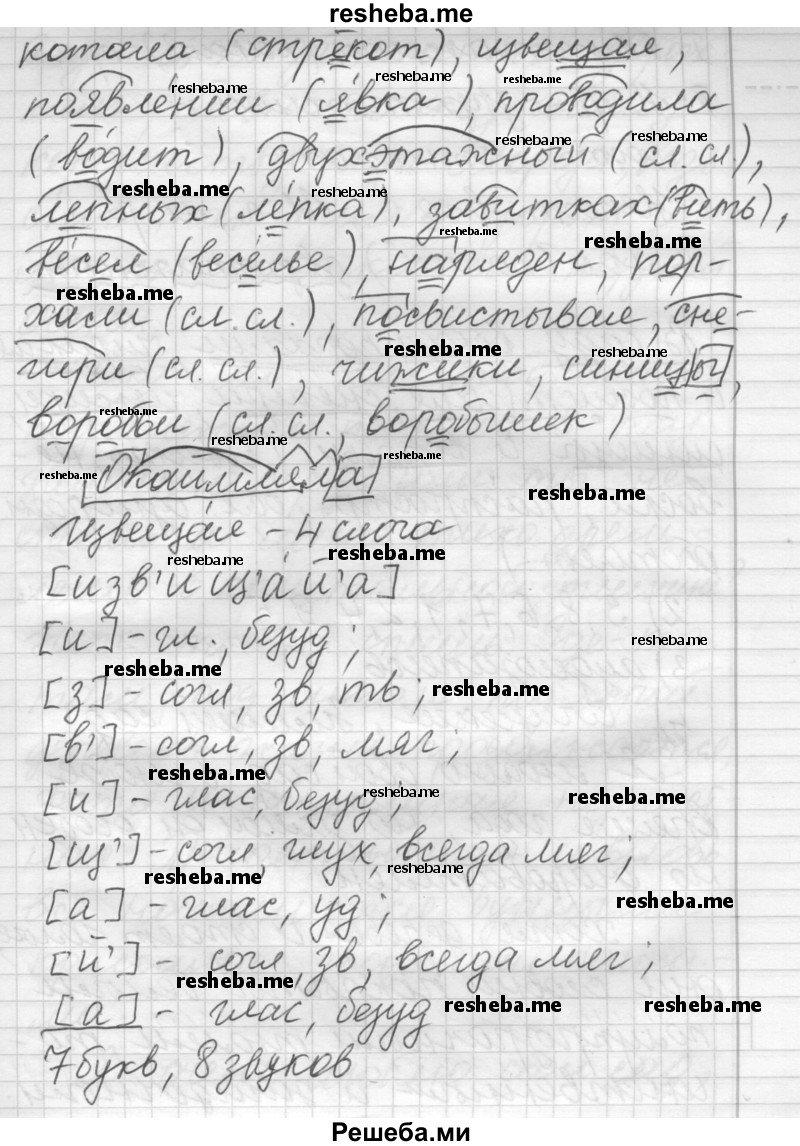 resheba.me
котала (стрекот), извещая,
появлении (явка), проводила
(водит), двухэтажный (сл. сл.),
лепных (лепка), завитках (вить),
весел (веселье), наряден, пор-
хали (сл. сл.), посвистывал, сне-
гири (сл. сл.), чижики, синицы,
воробьи (сл. сл., воробышек)
Окаймляла
Извещая – 4 слога
[изв'ищ'ай'а]
[и] – гл., безуд;
[з] – согл, зв, тв;
[в'] – согл, зв, мяг;
[и] – глас, безуд;
[щ'] – согл, глух, всегда мяг;
[а] – глас, уд;
[й'] – согл, зв, всегда мяг;
[а] – глас, безуд
7 букв, 8 звуков
Решеба.ми